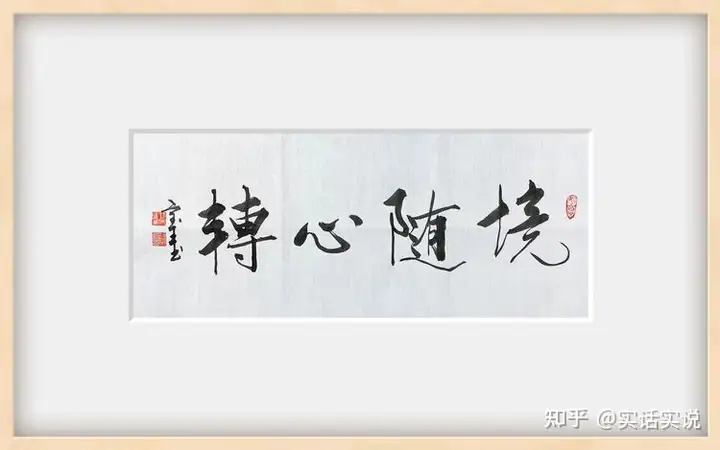 境随心轉
知乎 @实话实说